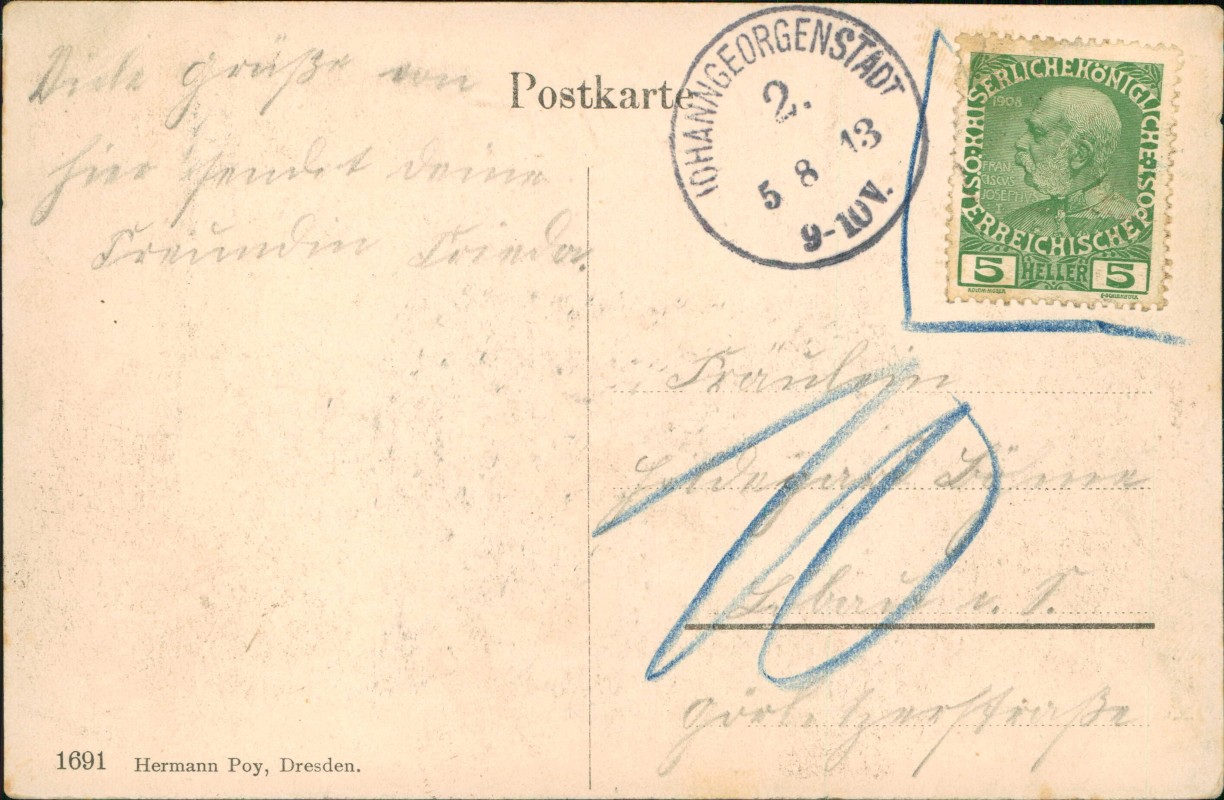 Viele Grüße von
hier sendet deine
Freundin Frieda.
Postkarte
JOHANNGEORGENSTADT
2.
5 8 13
9-10V.
KAISERLICHE KÖNIGLICHE ÖSTERREICHISCHE POST
1908
FRANCISCUS JOSEPHUS I
5 HELLER 5
10
Fräulein
Hildegart Böhme
Löbau i. S.
Görlitzerstraße
1691 Hermann Poy, Dresden.